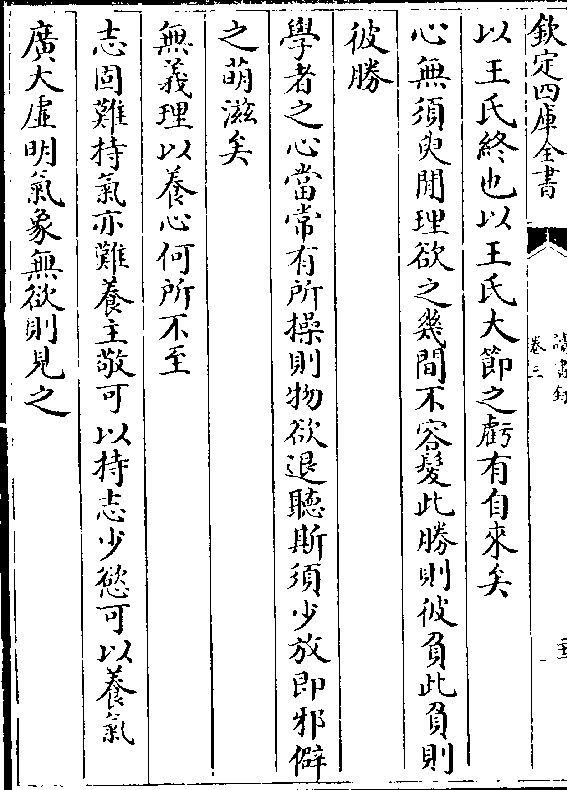 欽定四庫全書
讀書錄
卷三
以王氏終也以王氏大節之虧有自來矣
心無須臾閒理欲之幾間不容髮此勝則彼負此負則
彼勝
學者之心當常有所操則物欲退聽斯須少放即邪僻
之萌滋矣
無義理以養心何所不至
志固難持氣亦難養主敬可以持志少慾可以養氣
廣大虛明氣象無欲則見之